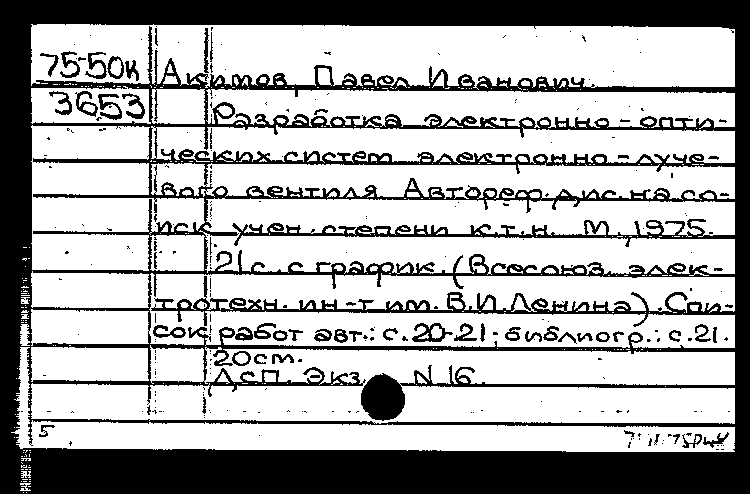 75-50к Акимов, Павел Иванович.
3653 Разработка электронно-опти-
ческих систем электронно-луче-
вого вентиля Автореф. дис. на со-
иск учен. степени к.т.н. М., 1975.
21с. с график. (Всесоюз. элек-
тротехн. ин-т им. В.И.Ленина). Спи-
сок работ авт.: с.20-21; библиогр.: с.21.
20см.
ДСП. Экз. N 16.
5